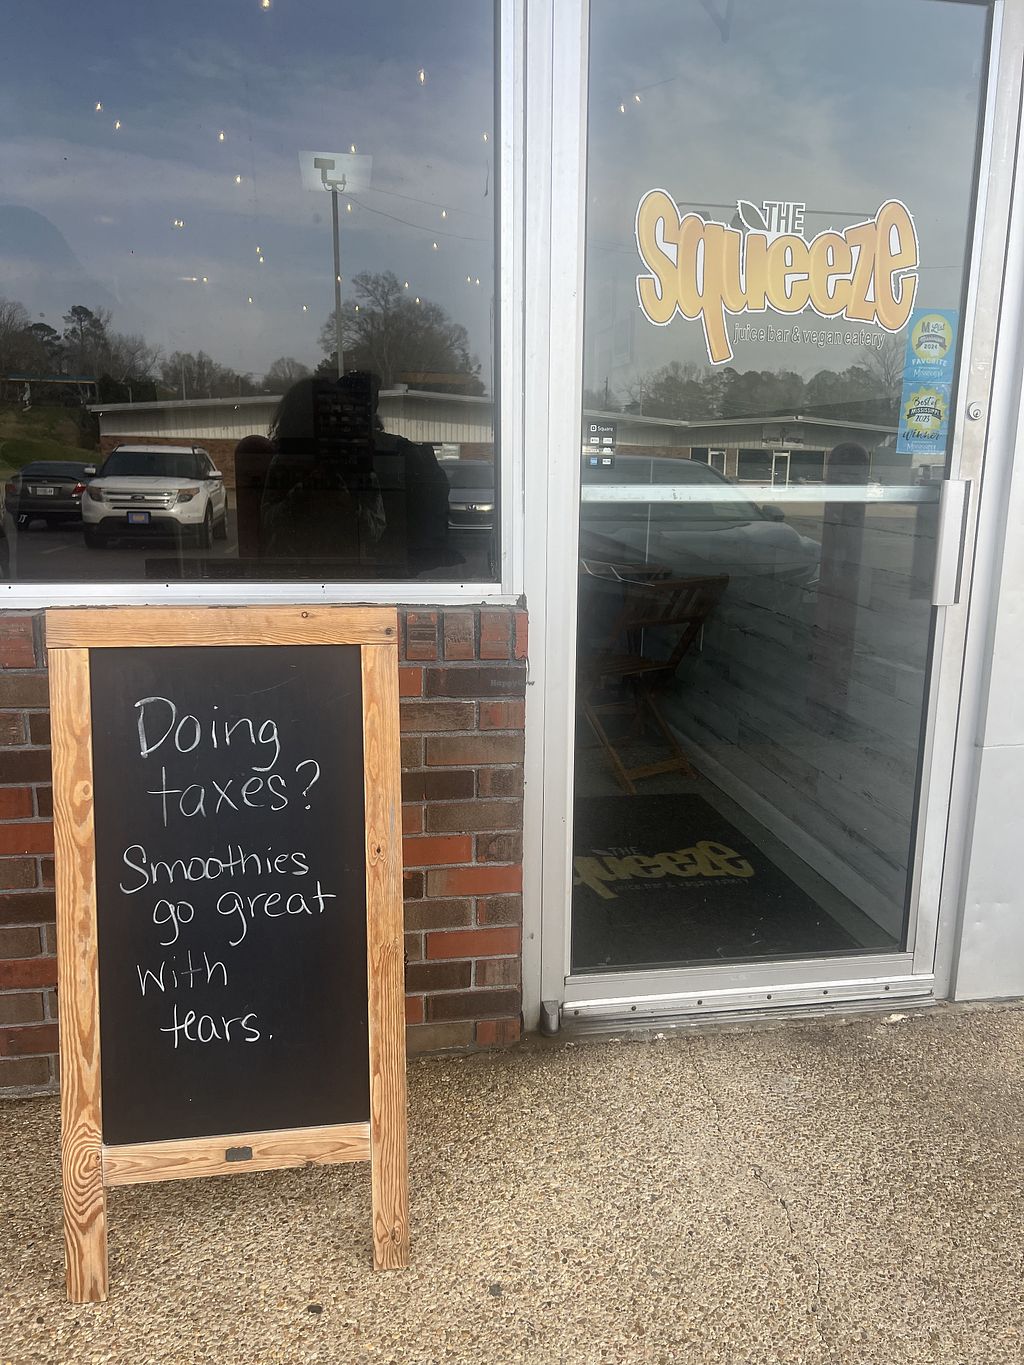 THE
squeeze
juice bar & vegan eatery
M List
2024
FAVORITE
Best of
MISSISSIPPI
2023
Winner
Square
Doing
taxes?
Smoothies
go great
with
tears.
HappyCow
THE
squeeze
juice bar & vegan eatery